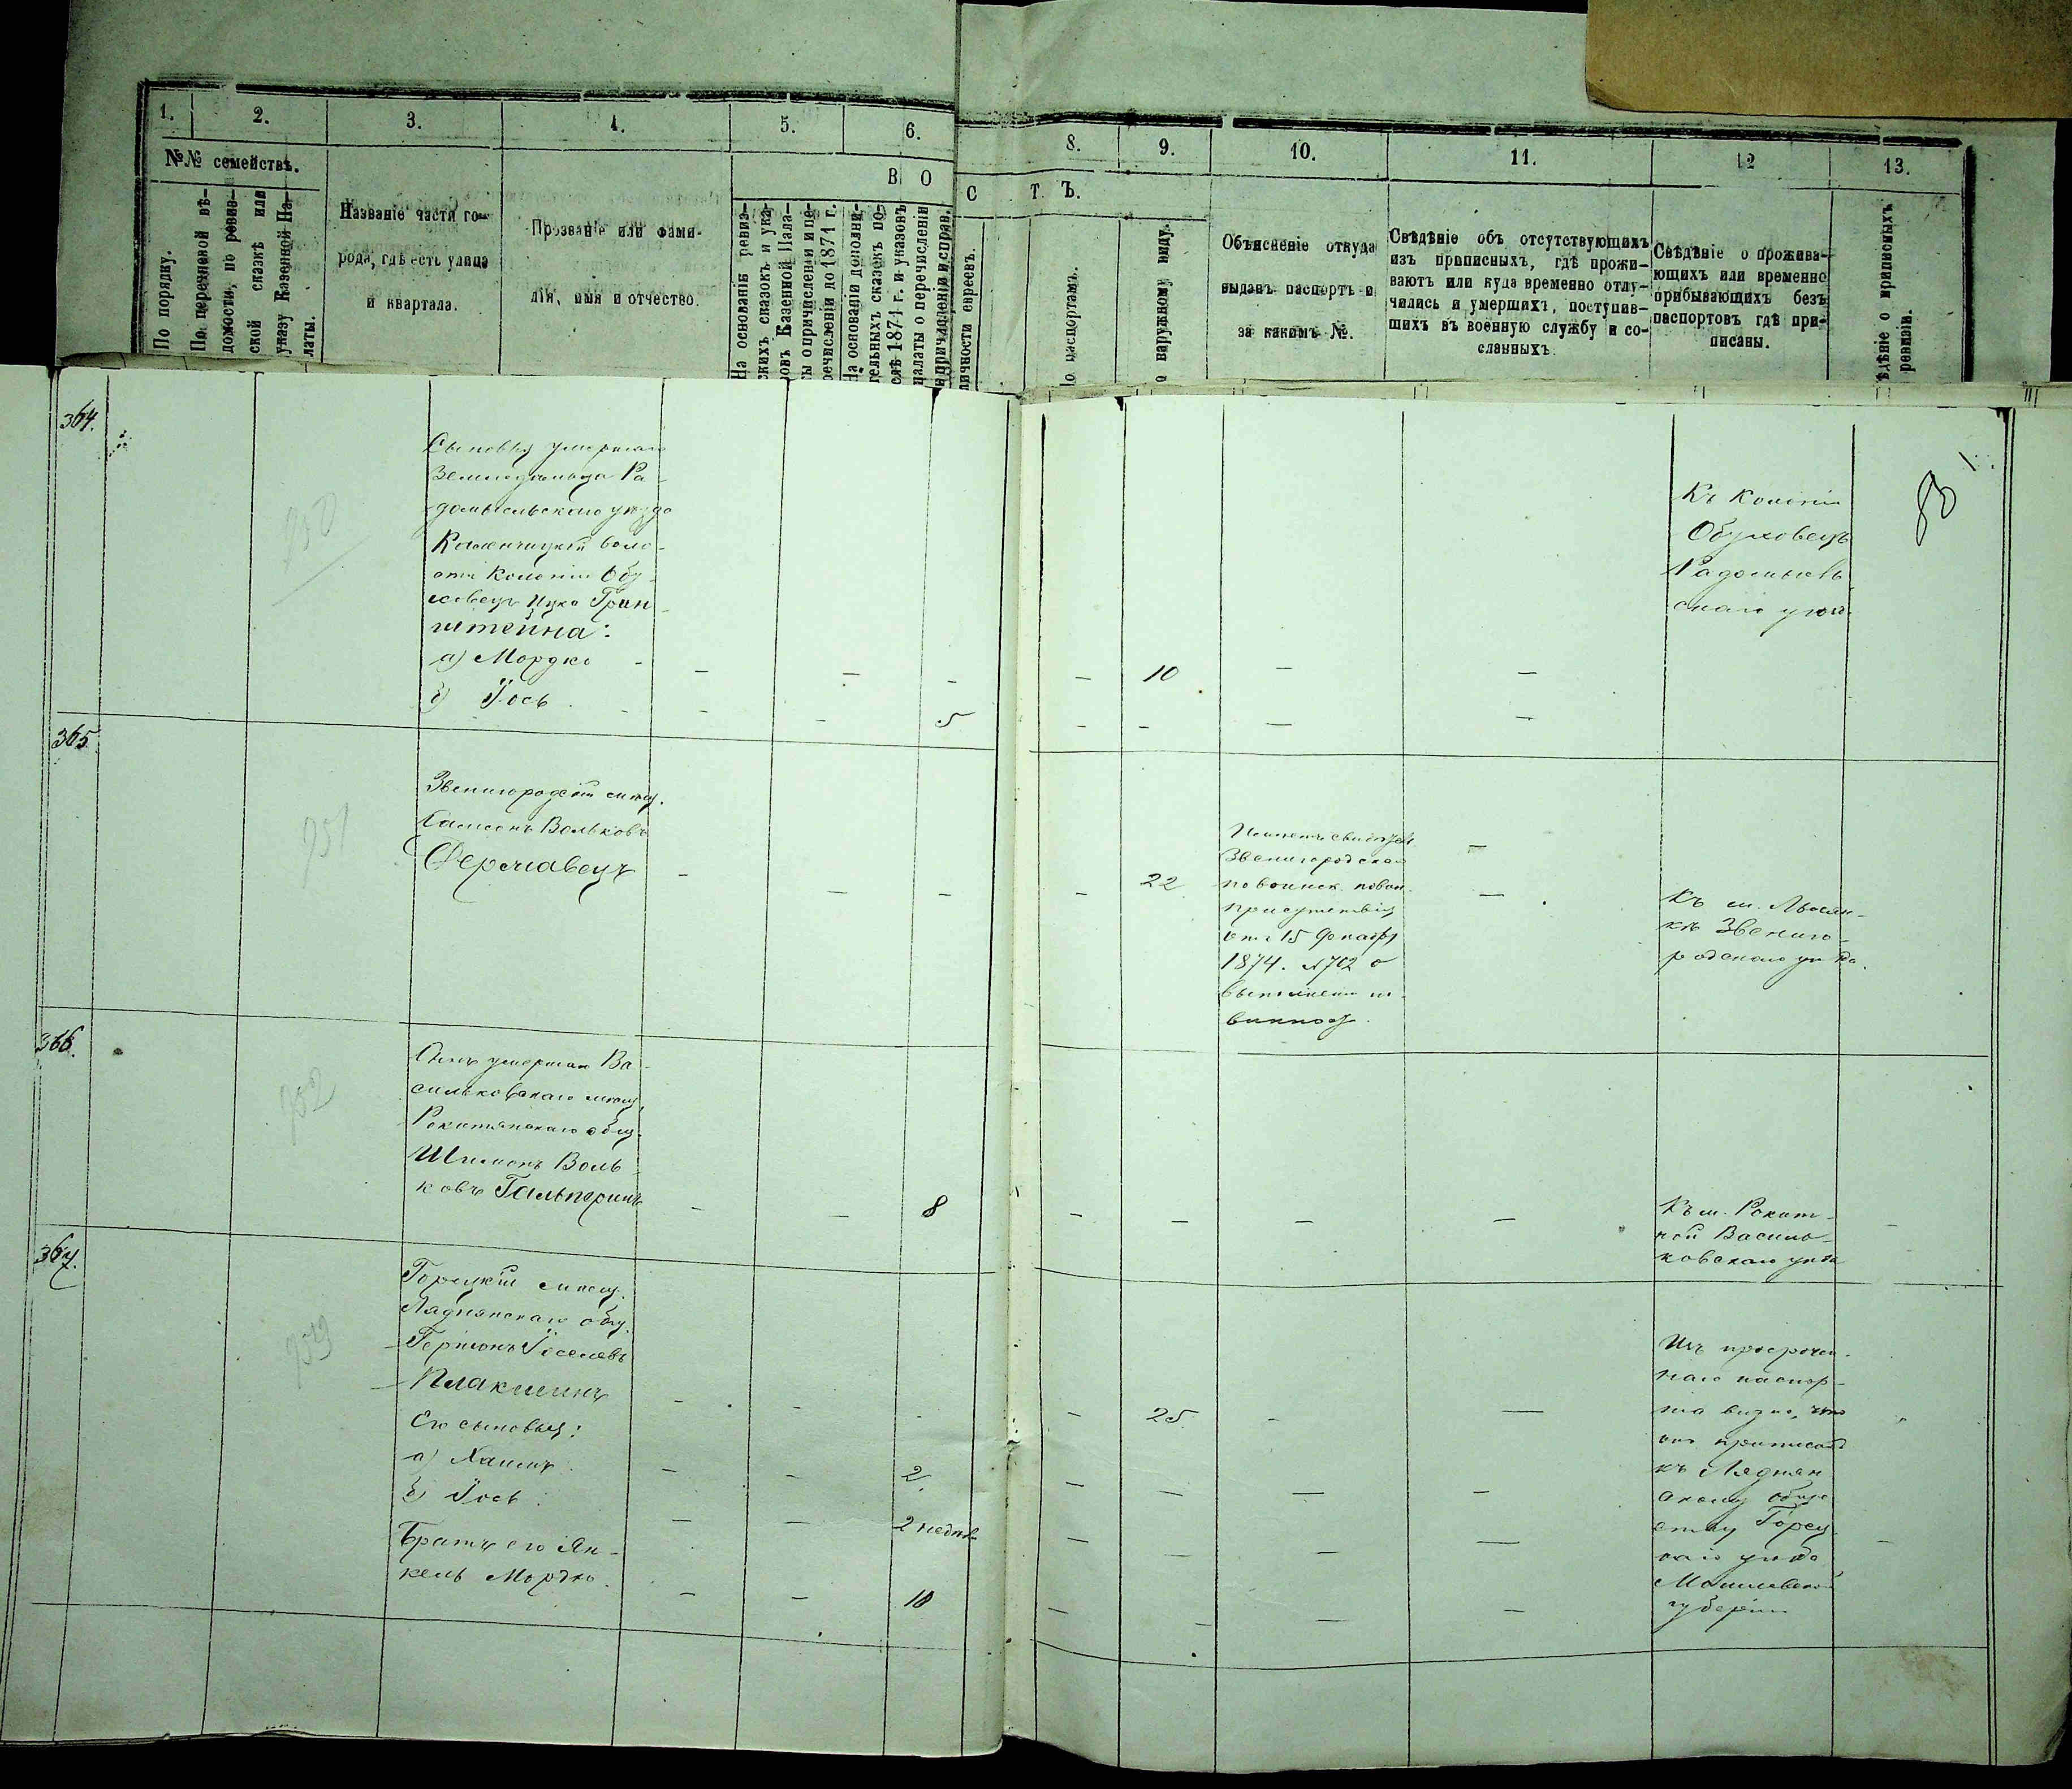 1. 2. 3. 4. 5. 6. 8. 9. 10. 11. 12 13.
№№ семействъ.
По порядку.
По перечневой вѣ-
домости, по ревиз-
ской сказкѣ или
указу Казенной Па-
латы.
Названіе части го-
рода, гдѣ есть улица
и квартала.
Прозваніе или фами-
лія, имя и отчество.
В О С Т Ъ.
На основаніи ревиз-
скихъ сказокъ и ука-
зовъ Казенной Пала-
ты о причисленіи и пе-
речисленіи до 1874 г.
На основаніи дополни-
тельныхъ сказокъ по-
слѣ 1874 г. и указовъ
палаты о перечисленіи
и причисленіи и справ.
личности евреевъ.
По паспортамъ.
по наружному виду.
Объясненіе откуда
выданъ паспортъ и
за какимъ №.
Свѣдѣніе объ отсутствующихъ
изъ приписныхъ, гдѣ прожи-
ваютъ или куда временно отлу-
чились и умершихъ, поступив-
шихъ въ военную службу и со-
сланныхъ.
Свѣдѣніе о прожива-
ющихъ или временно
прибывающихъ безъ
паспортовъ гдѣ при-
писаны.
ѣдѣніе о приписныхъ
ревизіи.
364.
950
Сыновья умершаго
Земледѣльца Ра-
домысльскаго уѣзда
воло-
сти Колоніи Обу-
ховецъ Ицко Грин-
штейна:
а) Мордко - - - - - 10 - -
б) Іось - - - 5 - - - -
Къ Колоніи
Обуховецъ
Радомысль
скаго уѣзд.
365.
951
Звенигородскій мѣщ.
Самсонъ Вольковъ
Державецъ - - - - 22
свидѣт.
Звенигородскаго
по воинск. повин.
присутствія
отъ 15 Декабря
1874. №702 о
выполненіи по-
винност.
- -
Къ м. Лысян-
кѣ Звениго-
родскаго уѣзда.
366.
952
Сынъ умершаго Ва-
сильковскаго мѣщ.
Рокитянскаго общ.
Шимонъ Воль-
ковъ Гальперинъ - - 8 - - - -
Къ м. Рокит-
ной Василь-
ковскаго уѣзда
367.
953
Горецкій мѣщ.
Ляднянскаго общ.
Гершонъ Іоселевъ
Плакшинъ - - - - 25 - -
Его сыновья:
а) Хаимъ - - 2 - - - -
б) Іось - - 2 недѣли - - - -
Братъ его Ян-
кель Мордко. - - 10 - - - -
Изъ просрочен-
наго паспор-
та видно, что
онъ приписанъ
къ Ляднян
скому обще
ству Горец-
каго уѣзда
Могилевской
губерніи